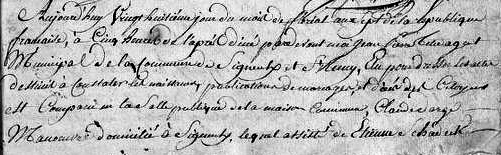 aujourdhuy vingt huitieme jour du mois de floreal an sept de la republique
francaise, a cinq heures de l'apres diné pardevant moi Jean agent
Municipal de la commune de et elu pour dresser les actes
destiné a constater les naissances, publications de mariages, et deces des Citoyens
est Comparu en la salle publique de la maison Commune, Claude
Manouvre domicilié a lequel assisté de Etienne